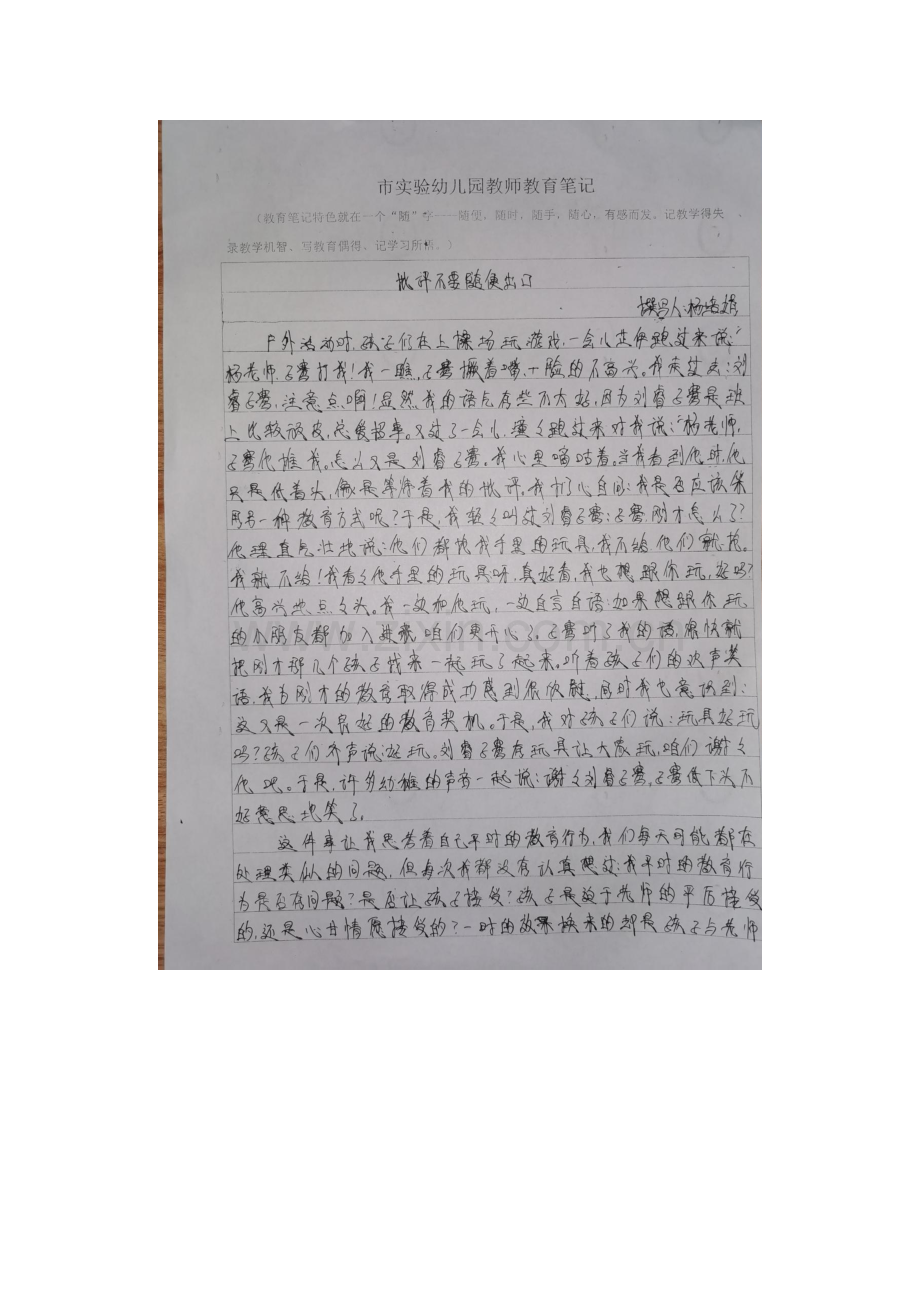 市实验幼儿园教师教育笔记
（教育笔记特色就在一个“随”字——随便，随时，随手，随心，有感而发，记教学得失
录教学机智、写教育偶得、记学习所 。）
批评不要随便出口
撰写人:杨培娟
户外活动时,孩子们在上操场玩游戏,一会儿 跑过来说:“
杨老师,子骞打我!我一瞧,子骞撅着嘴,一脸的不高兴。我走过去:刘
睿子骞,注意点啊!显然,我的语气有些不太好,因为刘睿子骞是班
上比较顽皮,总爱招事。又过了一会儿, 跑过来对我说:“杨老师,
子骞他推我。怎么又是刘睿子骞。我心里嘀咕着。当我看到他时,他
只是低着头,像是等待着我的批评。我扪心自问:我是否应该采
用另一种教育方式呢?于是,我轻轻叫过刘睿子骞:子骞,刚才怎么了?
他理直气壮地说:他们都抢我手里的玩具,我不给他们就抢。
我就不给!我看看他手里的玩具呀,真好看,我也想跟你玩,好吗?
他高兴地点点头。我一边和他玩,一边自言自语:如果想跟你玩
的小朋友都加入进来,咱们更开心了。子骞听了我的话,很快就
把刚才那几个孩子找来一起玩了起来。听着孩子们的欢声笑
语,我为刚才的教育取得成功感到很欣慰,同时我也意识到:
这又是一次良好的教育契机。于是,我对孩子们说:玩具好玩
吗?孩子们齐声说:好玩。刘睿子骞有玩具让大家玩,咱们谢谢
他吧。于是,许多幼稚的声音一起说:谢谢刘睿子骞,子骞低下头不
好意思地笑了。
这件事让我思考着自己平时的教育行为,我们每天可能都在
处理类似的问题,但每次我都没有认真想过:我平时的教育行
为是否有问题?是否让孩子接受?孩子是迫于老师的 接受
的,还是心甘情愿接受的?一时的效果换来的却是孩子与老师